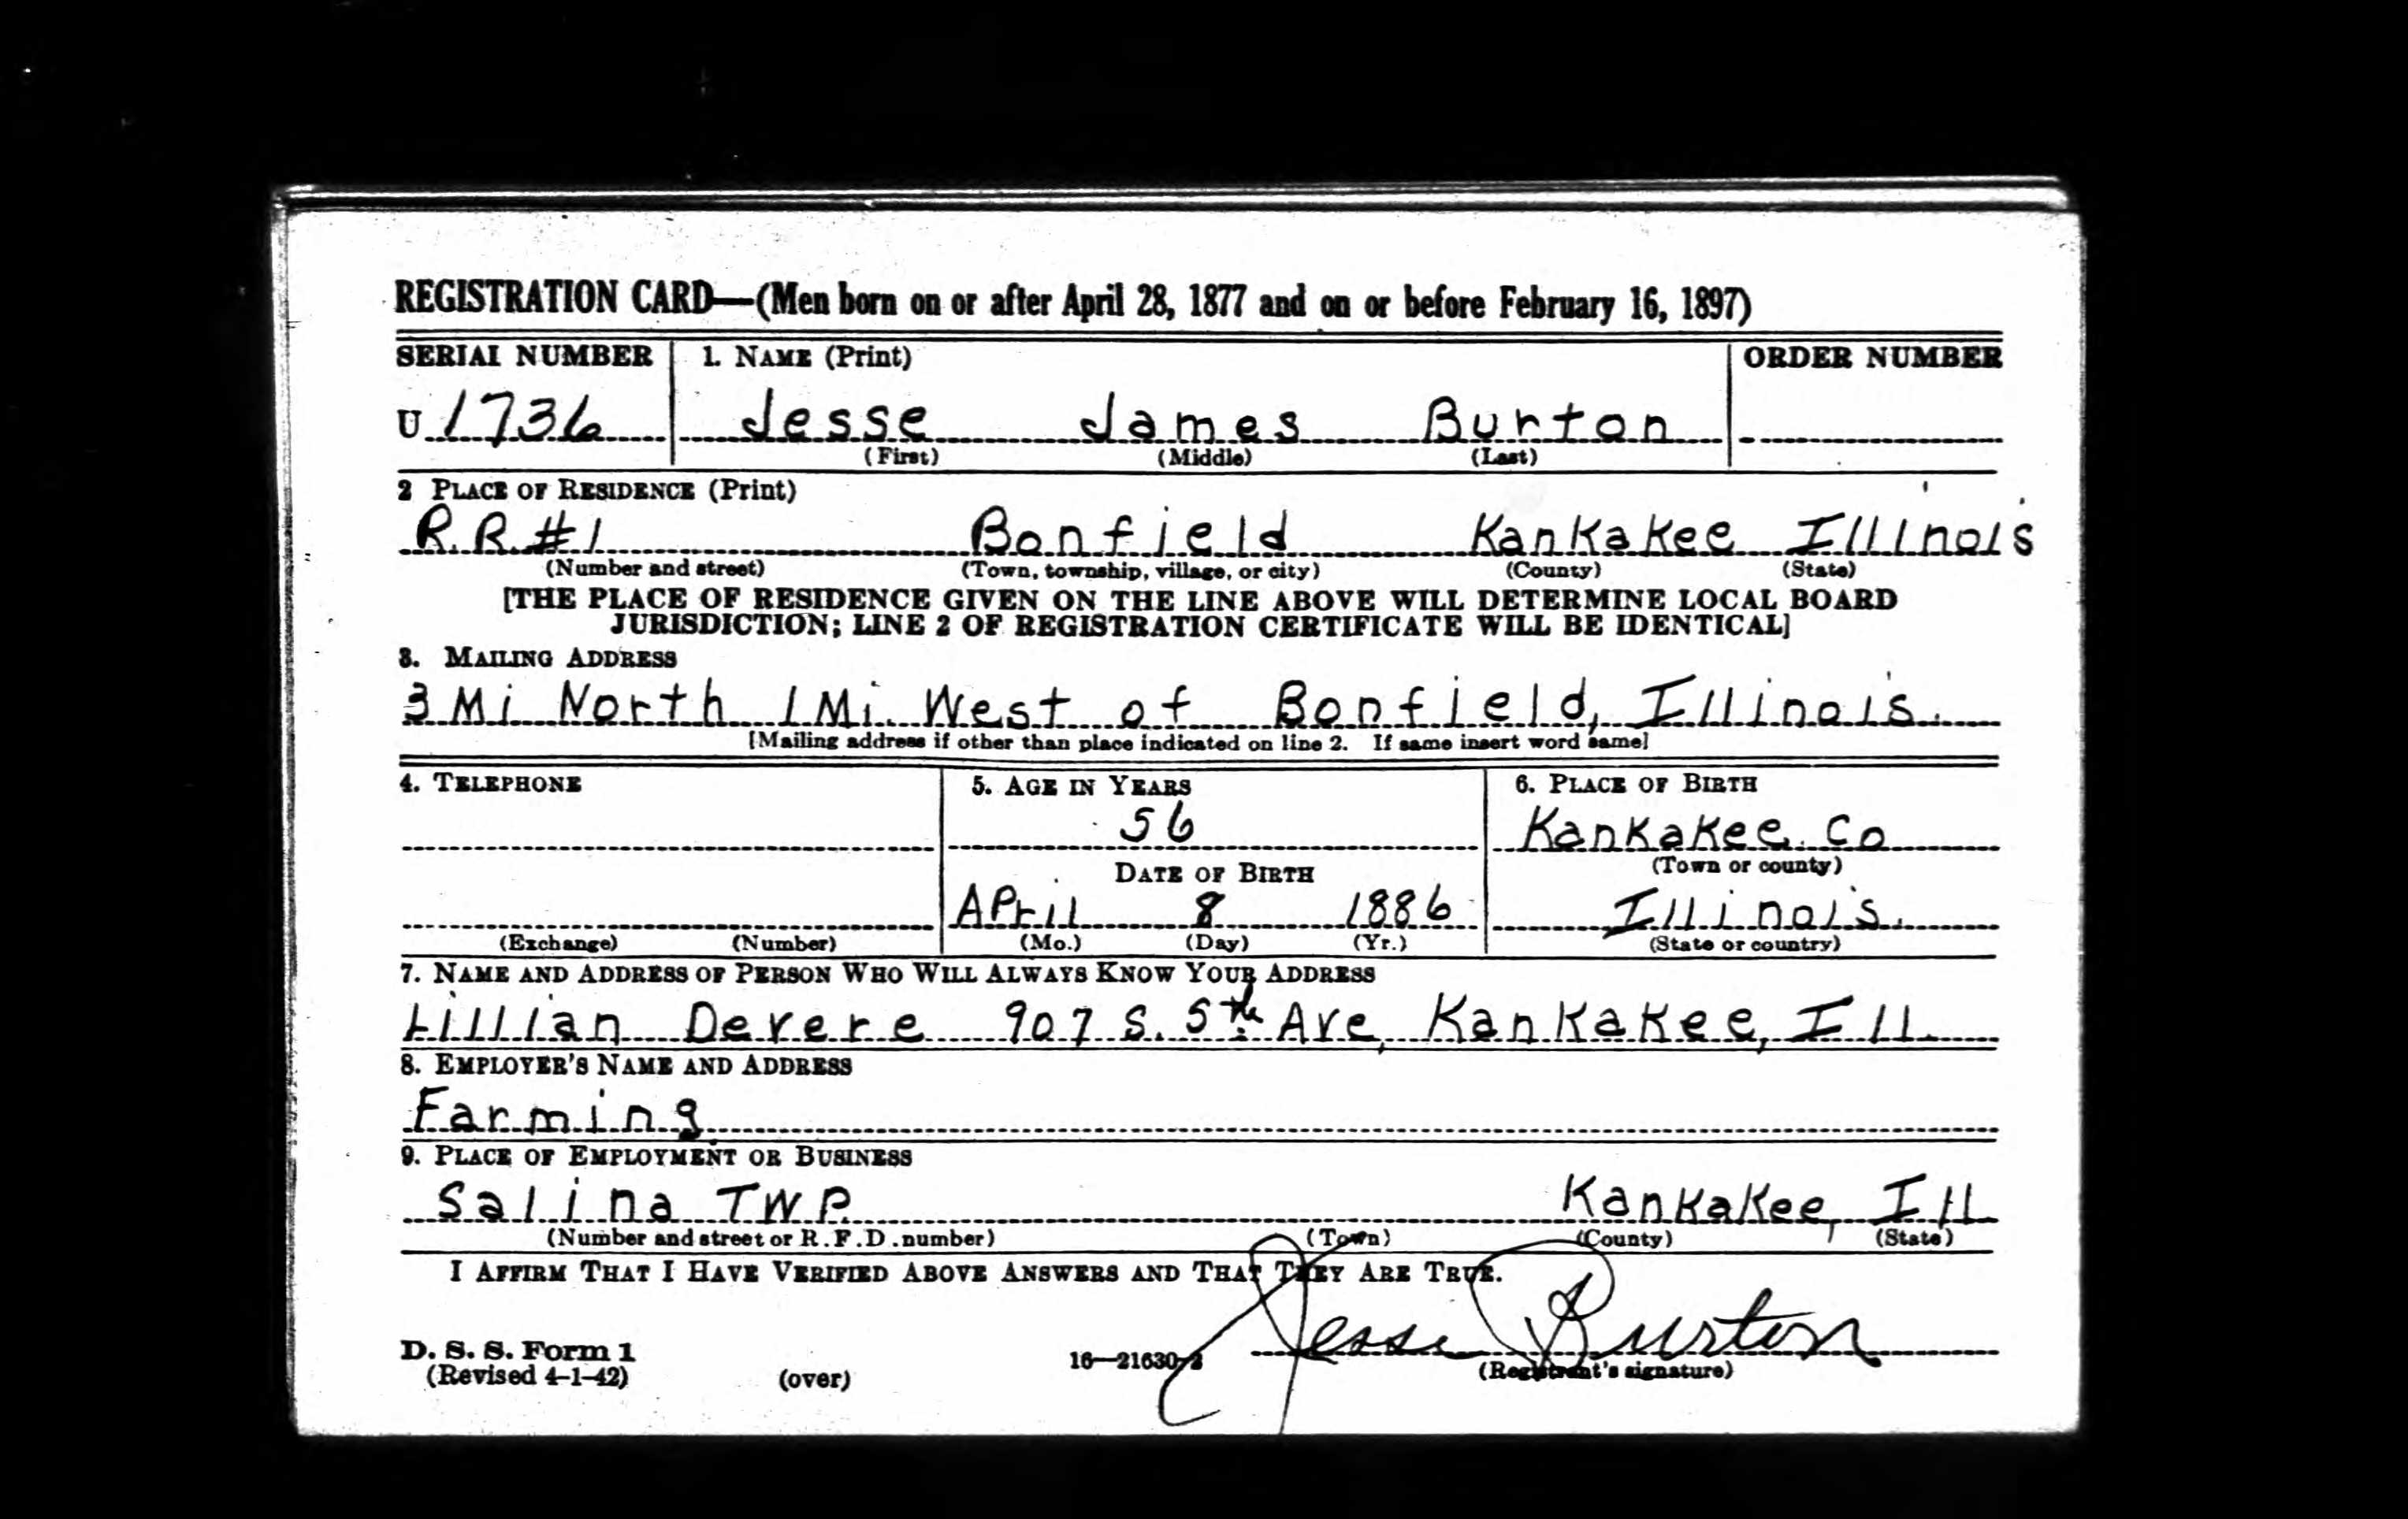 REGISTRATION CARD—(Men born on or after April 28, 1877 and on or before February 16, 1897)
SERIAL NUMBER 1. NAME (Print) ORDER NUMBER
U 1736 Jesse James Burton
(First) (Middle) (Last)
2 PLACE OF RESIDENCE (Print)
R.R.#1 Bonfield Kankakee Illinois
(Number and street) (Town, township, village, or city) (County) (State)
[THE PLACE OF RESIDENCE GIVEN ON THE LINE ABOVE WILL DETERMINE LOCAL BOARD
JURISDICTION; LINE 2 OF REGISTRATION CERTIFICATE WILL BE IDENTICAL]
3. MAILING ADDRESS
3 Mi North 1 Mi. West of Bonfield, Illinois.
[Mailing address if other than place indicated on line 2. If same insert word same]
4. TELEPHONE 5. AGE IN YEARS 6. PLACE OF BIRTH
56 Kankakee Co
DATE OF BIRTH (Town or county)
April 8 1886 Illinois.
(Exchange) (Number) (Mo.) (Day) (Yr.) (State or country)
7. NAME AND ADDRESS OF PERSON WHO WILL ALWAYS KNOW YOUR ADDRESS
Lillian Devere 907 S. 5th Ave, Kankakee, Ill.
8. EMPLOYER'S NAME AND ADDRESS
Farming
9. PLACE OF EMPLOYMENT OR BUSINESS
Salina TWP. Kankakee, Ill
(Number and street or R.F.D. number) (Town) (County) (State)
I AFFIRM THAT I HAVE VERIFIED ABOVE ANSWERS AND THAT THEY ARE TRUE.
Jesse Burton
D. S. S. Form 1 16—21630-2 (Registrant's signature)
(Revised 4-1-42) (over)